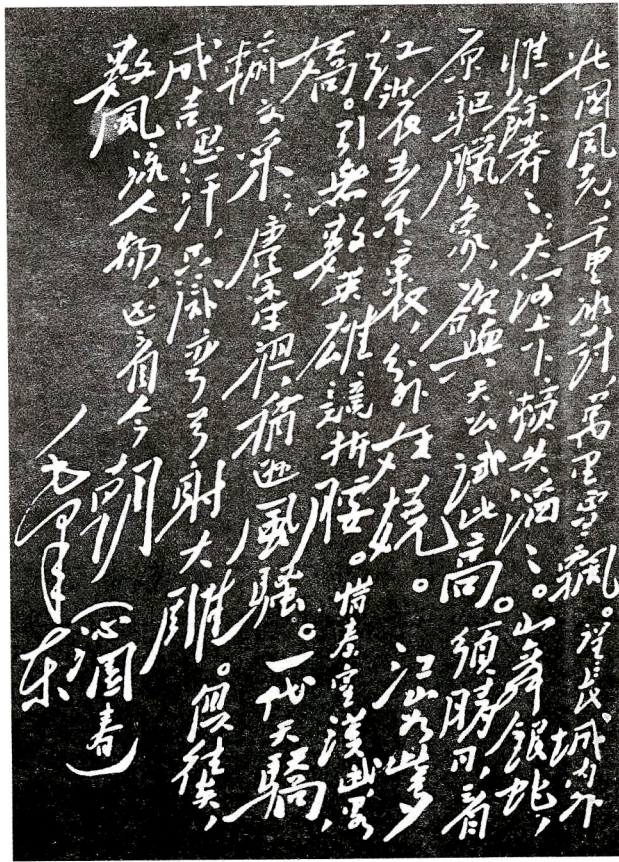 北國風光,千里冰封,萬里雪飄。望長城内外
惟餘莽〻;大河上下,頓失滔〻。山舞銀蛇,
原驅臘象,欲與天公試比高。須晴日,看
紅裝素裹,分外妖嬈。江山如此多
嬌。引無數英雄競折腰。惜秦皇漢武,略
輸文采;唐宗宋祖,稍遜風騷。一代天驕,
成吉思汗,只識彎弓射大雕。俱往矣,
數風流人物,还看今朝
(沁園春)
毛澤东